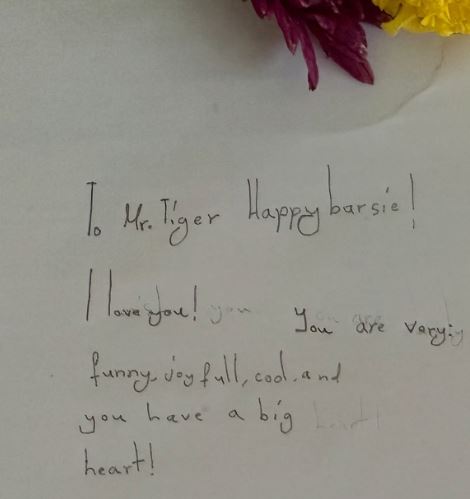 To Mr. Tiger Happy barsie!
I love you! You are very:
funny, joyfull, cool. and
you have a big
heart!